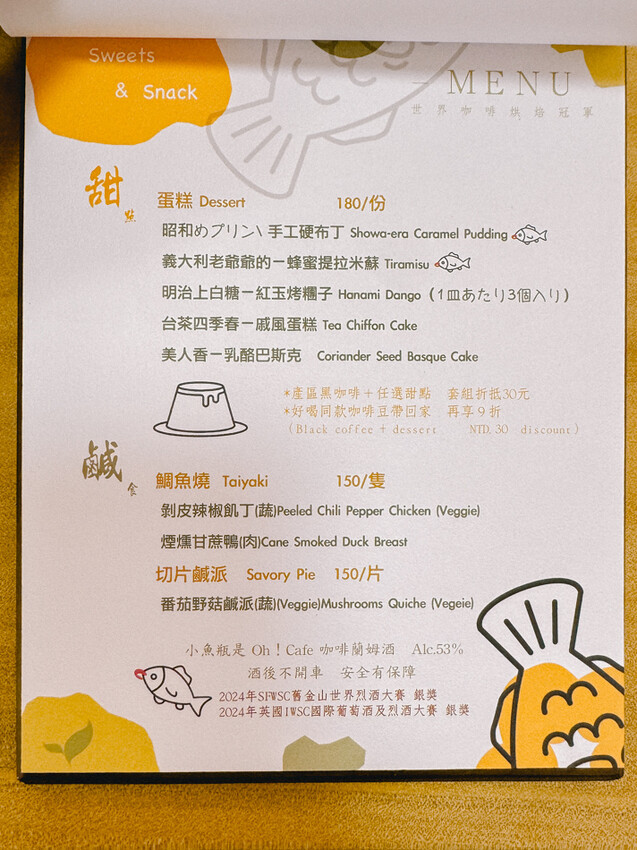 Sweets
& Snack
— MENU
世界咖啡烘焙冠軍
甜點
蛋糕 Dessert 180/份
昭和めプリン\ 手工硬布丁 Showa-era Caramel Pudding
義大利老爺爺的－蜂蜜提拉米蘇 Tiramisu
明治上白糖－紅玉烤糰子 Hanami Dango（1皿あたり3個入り）
台茶四季春－戚風蛋糕 Tea Chiffon Cake
美人香－乳酪巴斯克 Coriander Seed Basque Cake
*產區黑咖啡＋任選甜點 套組折抵30元
*好喝同款咖啡豆帶回家 再享９折
（Black coffee + dessert NTD. 30 discount）
鹹食
鯛魚燒 Taiyaki 150/隻
剝皮辣椒飢丁(蔬)Peeled Chili Pepper Chicken (Veggie)
煙燻甘蔗鴨(肉)Cane Smoked Duck Breast
切片鹹派 Savory Pie 150/片
番茄野菇鹹派(蔬)(Veggie)Mushrooms Quiche (Vegeie)
小魚瓶是 Oh！Cafe 咖啡蘭姆酒 Alc.53%
酒後不開車 安全有保障
2024年SFWSC舊金山世界烈酒大賽 銀獎
2024年英國IWSC國際葡萄酒及烈酒大賽 銀獎